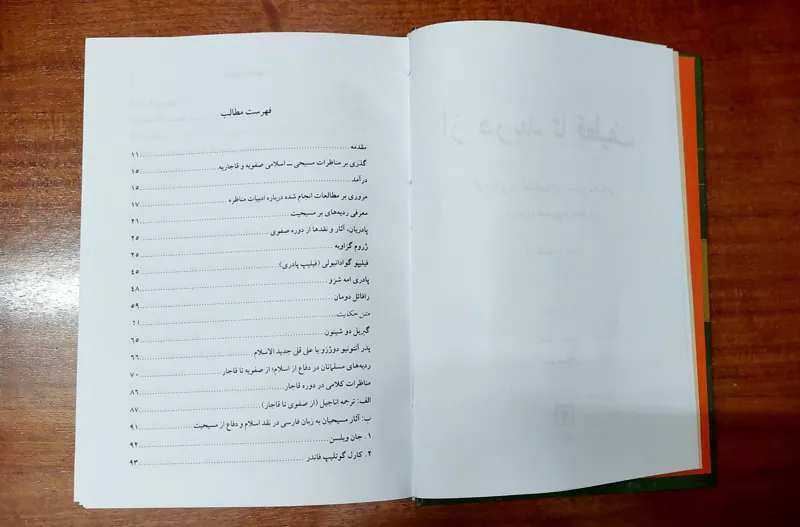 فهرست مطالب
مقدمه ........ ۱۱
گذری بر مناظرات مسیحی ـ اسلامی صفویه و قاجاریه ........ ۱۵
درآمد ........ ۱۵
مروری بر مطالعات انجام شده درباره ادبیات مناظره ........ ۱۷
معرفی ردیه‌های بر مسیحیت ........ ۲۱
پادریان، آثار و نقدها از دوره صفوی ........ ۲۵
ژروم گزاویه ........ ۲۵
فیلیپو گوادانیولی (فیلیپ پادری) ........ ۴۵
پادری امه شزو ........ ۴۸
رافائل دومان ........ ۵۹
متن حکایت ........ ۶۱
گبریل دو شینون ........ ۶۵
پدر آنتونیو دوژزو یا علی قلی جدید الاسلام ........ ۶۶
ردیه‌های مسلمانان در دفاع از اسلام؛ از صفویه تا قاجار ........ ۷۰
مناظرات کلامی در دوره قاجار ........ ۸۶
الف: ترجمه اناجیل (از صفوی تا قاجار) ........ ۸۷
ب: آثار مسیحیان به زبان فارسی در نقد اسلام و دفاع از مسیحیت ........ ۹۱
۱. جان ویلسن ........ ۹۲
۲. کارل گوتلیپ فاندر ........ ۹۳
از دربند تا قطیف